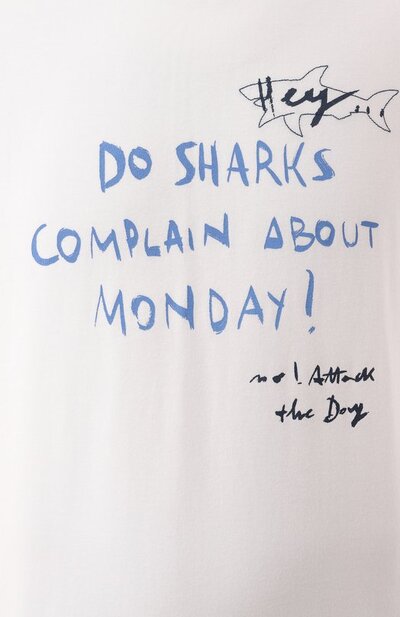 Hey...
DO SHARKS
COMPLAIN ABOUT
MONDAY!
no! Attack
the Day